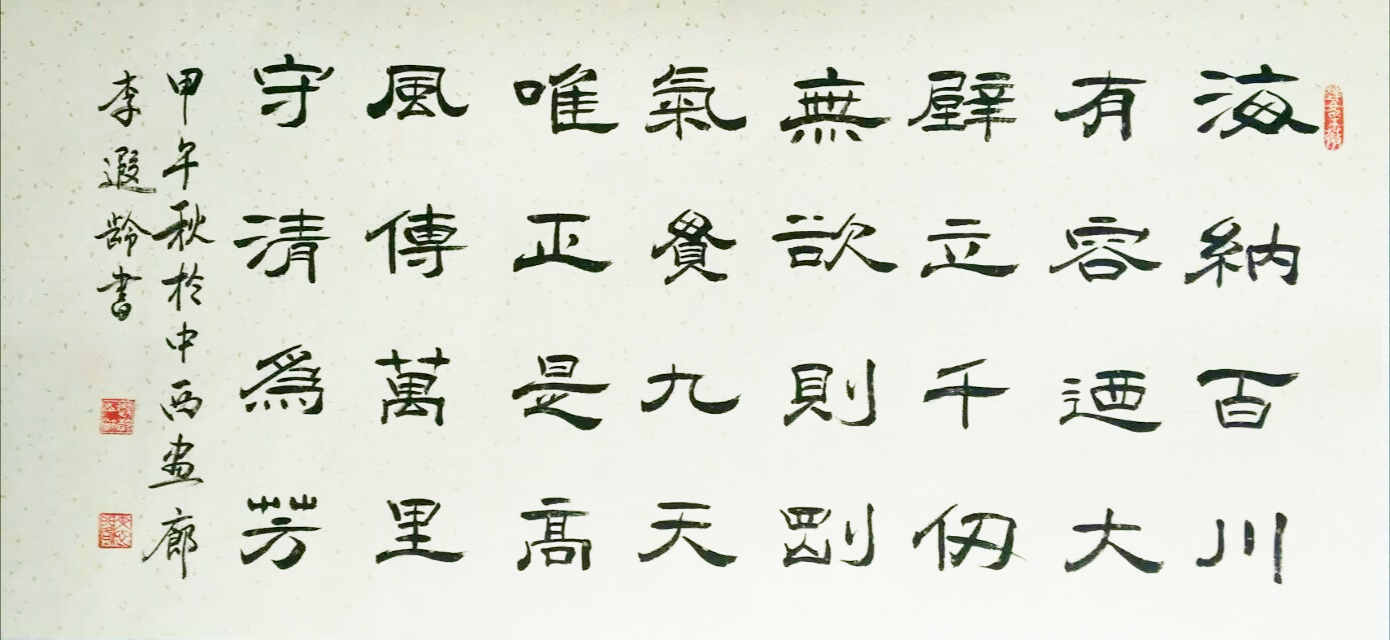 海納百川
有容迺大
壁立千仞
無欲則剛
氣貫九天
唯正是高
風傳萬里
守清為芳
甲午秋於中西畫廊
李遐齡書